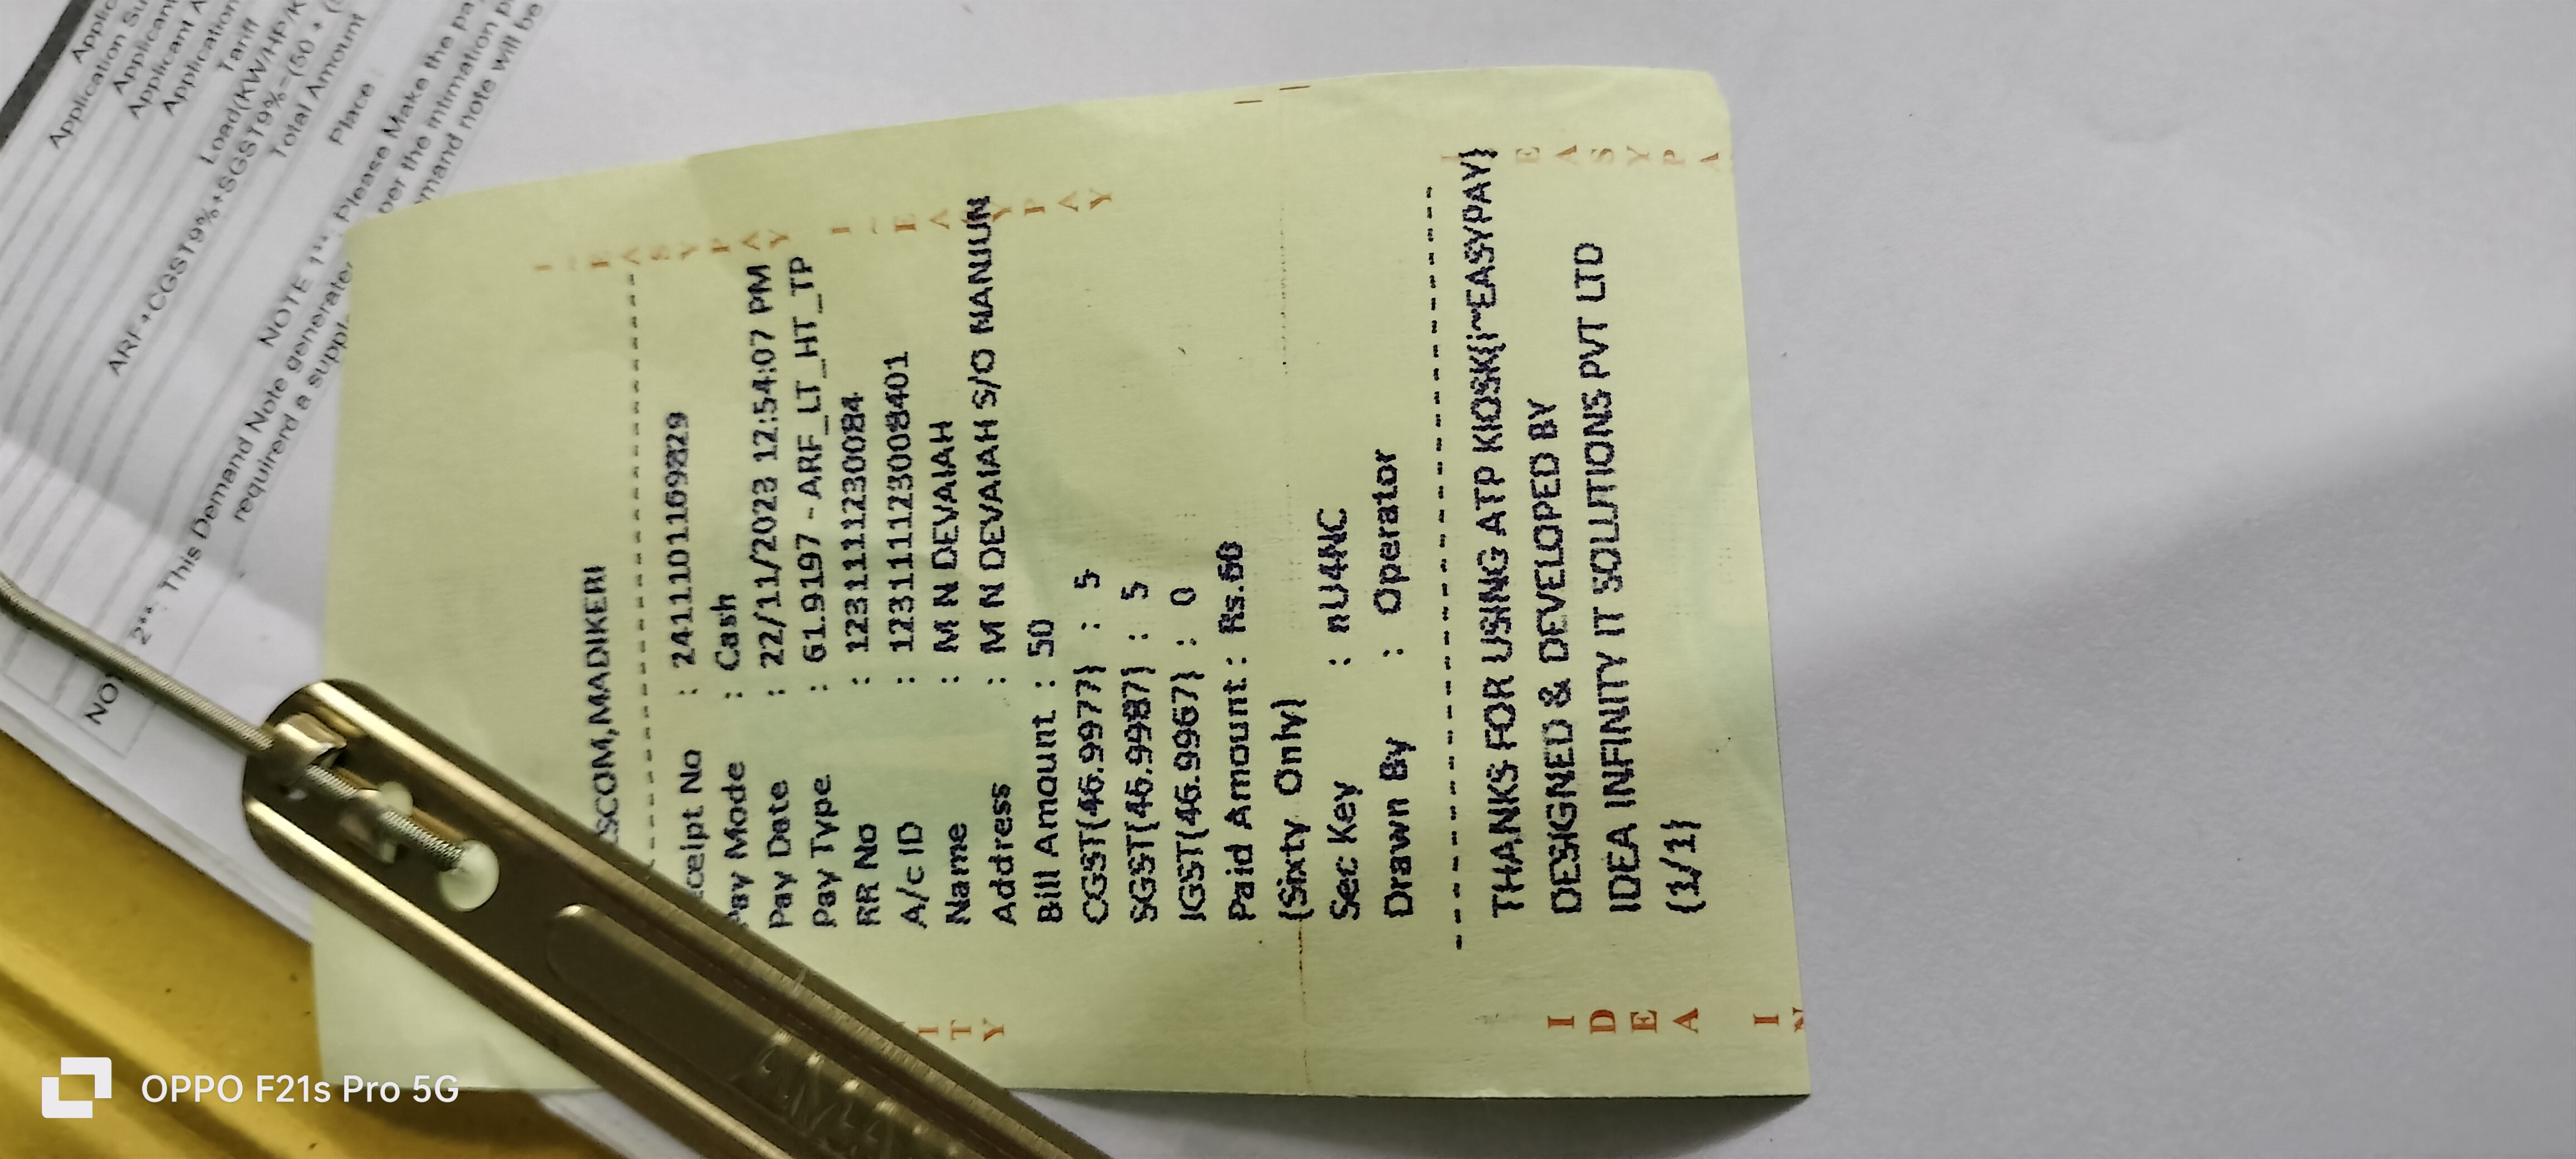 Applicant
Application
Tariff
Load(KW/HP/K
ARF+CGST9%+SGST9%=(50 +
Total Amount
Place :
NOTE 1**: Please Make the
per the intimation
2**: This Demand Note generated
mand note will be
required a suppl
NO
ESCOM,MADIKERI
--------------------------------
ceipt No : 241110116982​9
Pay Mode : Cash
Pay Date : 22/11/2023 12:54:07 PM
Pay Type : 61.9197 - ARF_LT_HT_TP
RR No : 12311111230084
A/c ID : 1231111123008401
Name : M N DEVAIAH
Address : M N DEVAIAH S/O MANJUN
Bill Amount : 50
CGST(46.9977) : 5
SGST(46.9987) : 5
IGST(46.9967) : 0
Paid Amount : Rs.60
(Sixty Only)
Sec Key : nU4NC
Drawn By : Operator
--------------------------------
THANKS FOR USING ATP KIOSK(i~EASYPAY)
DESIGNED & DEVELOPED BY
IDEA INFINITY IT SOLUTIONS PVT LTD
(1/1)
EASYPAY
EASYPA
ITY
IDEA IN
OPPO F21s Pro 5G